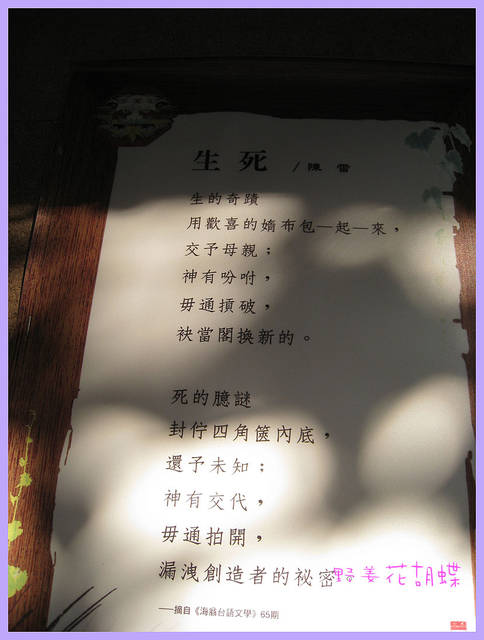 生死 /陳雷
生的奇蹟
用歡喜的媠布包一起一來，
交予母親；
神有吩咐，
毋通摃破，
袂當閣換新的。
死的臆謎
封佇四角篋內底，
還予未知；
神有交代，
毋通拍開，
漏洩創造者的祕密
野姜花胡蝶
──摘自《海翁台語文學》65期